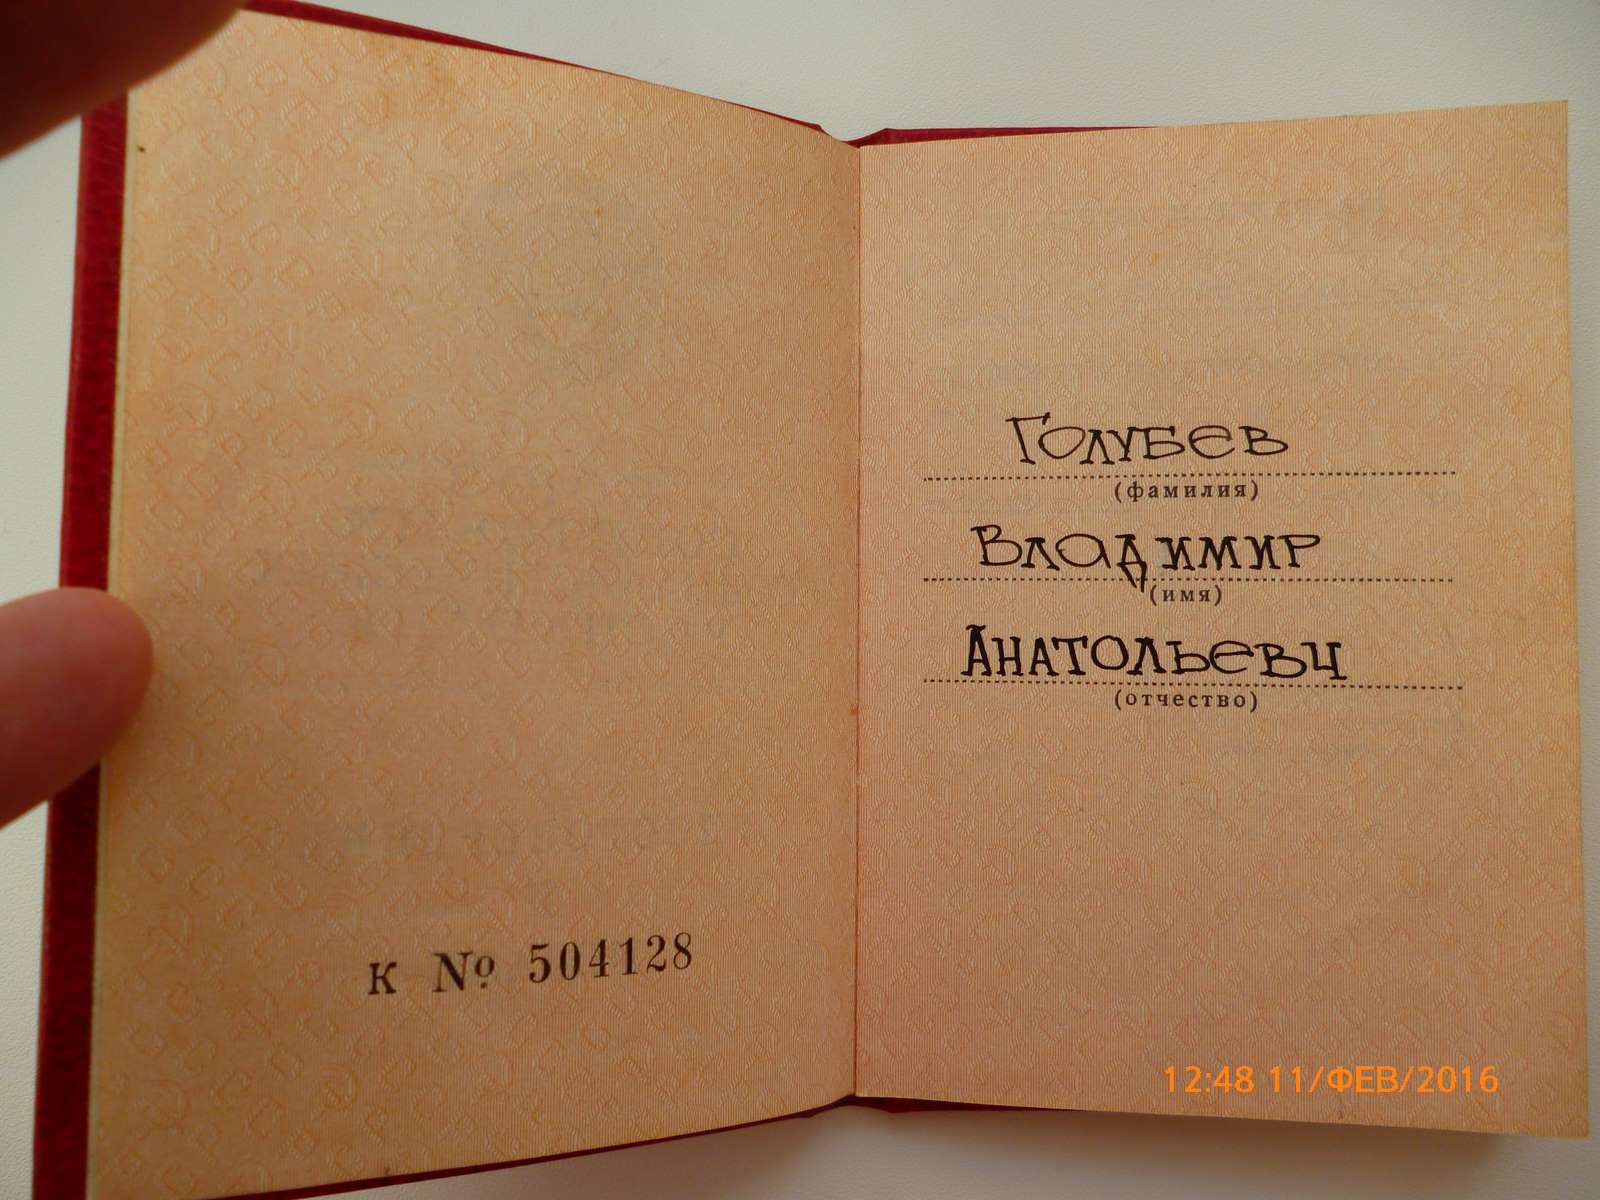 К № 504128
Голубев
(фамилия)
Владимир
(имя)
Анатольевч
(отчество)
12:48 11/ФЕВ/2016